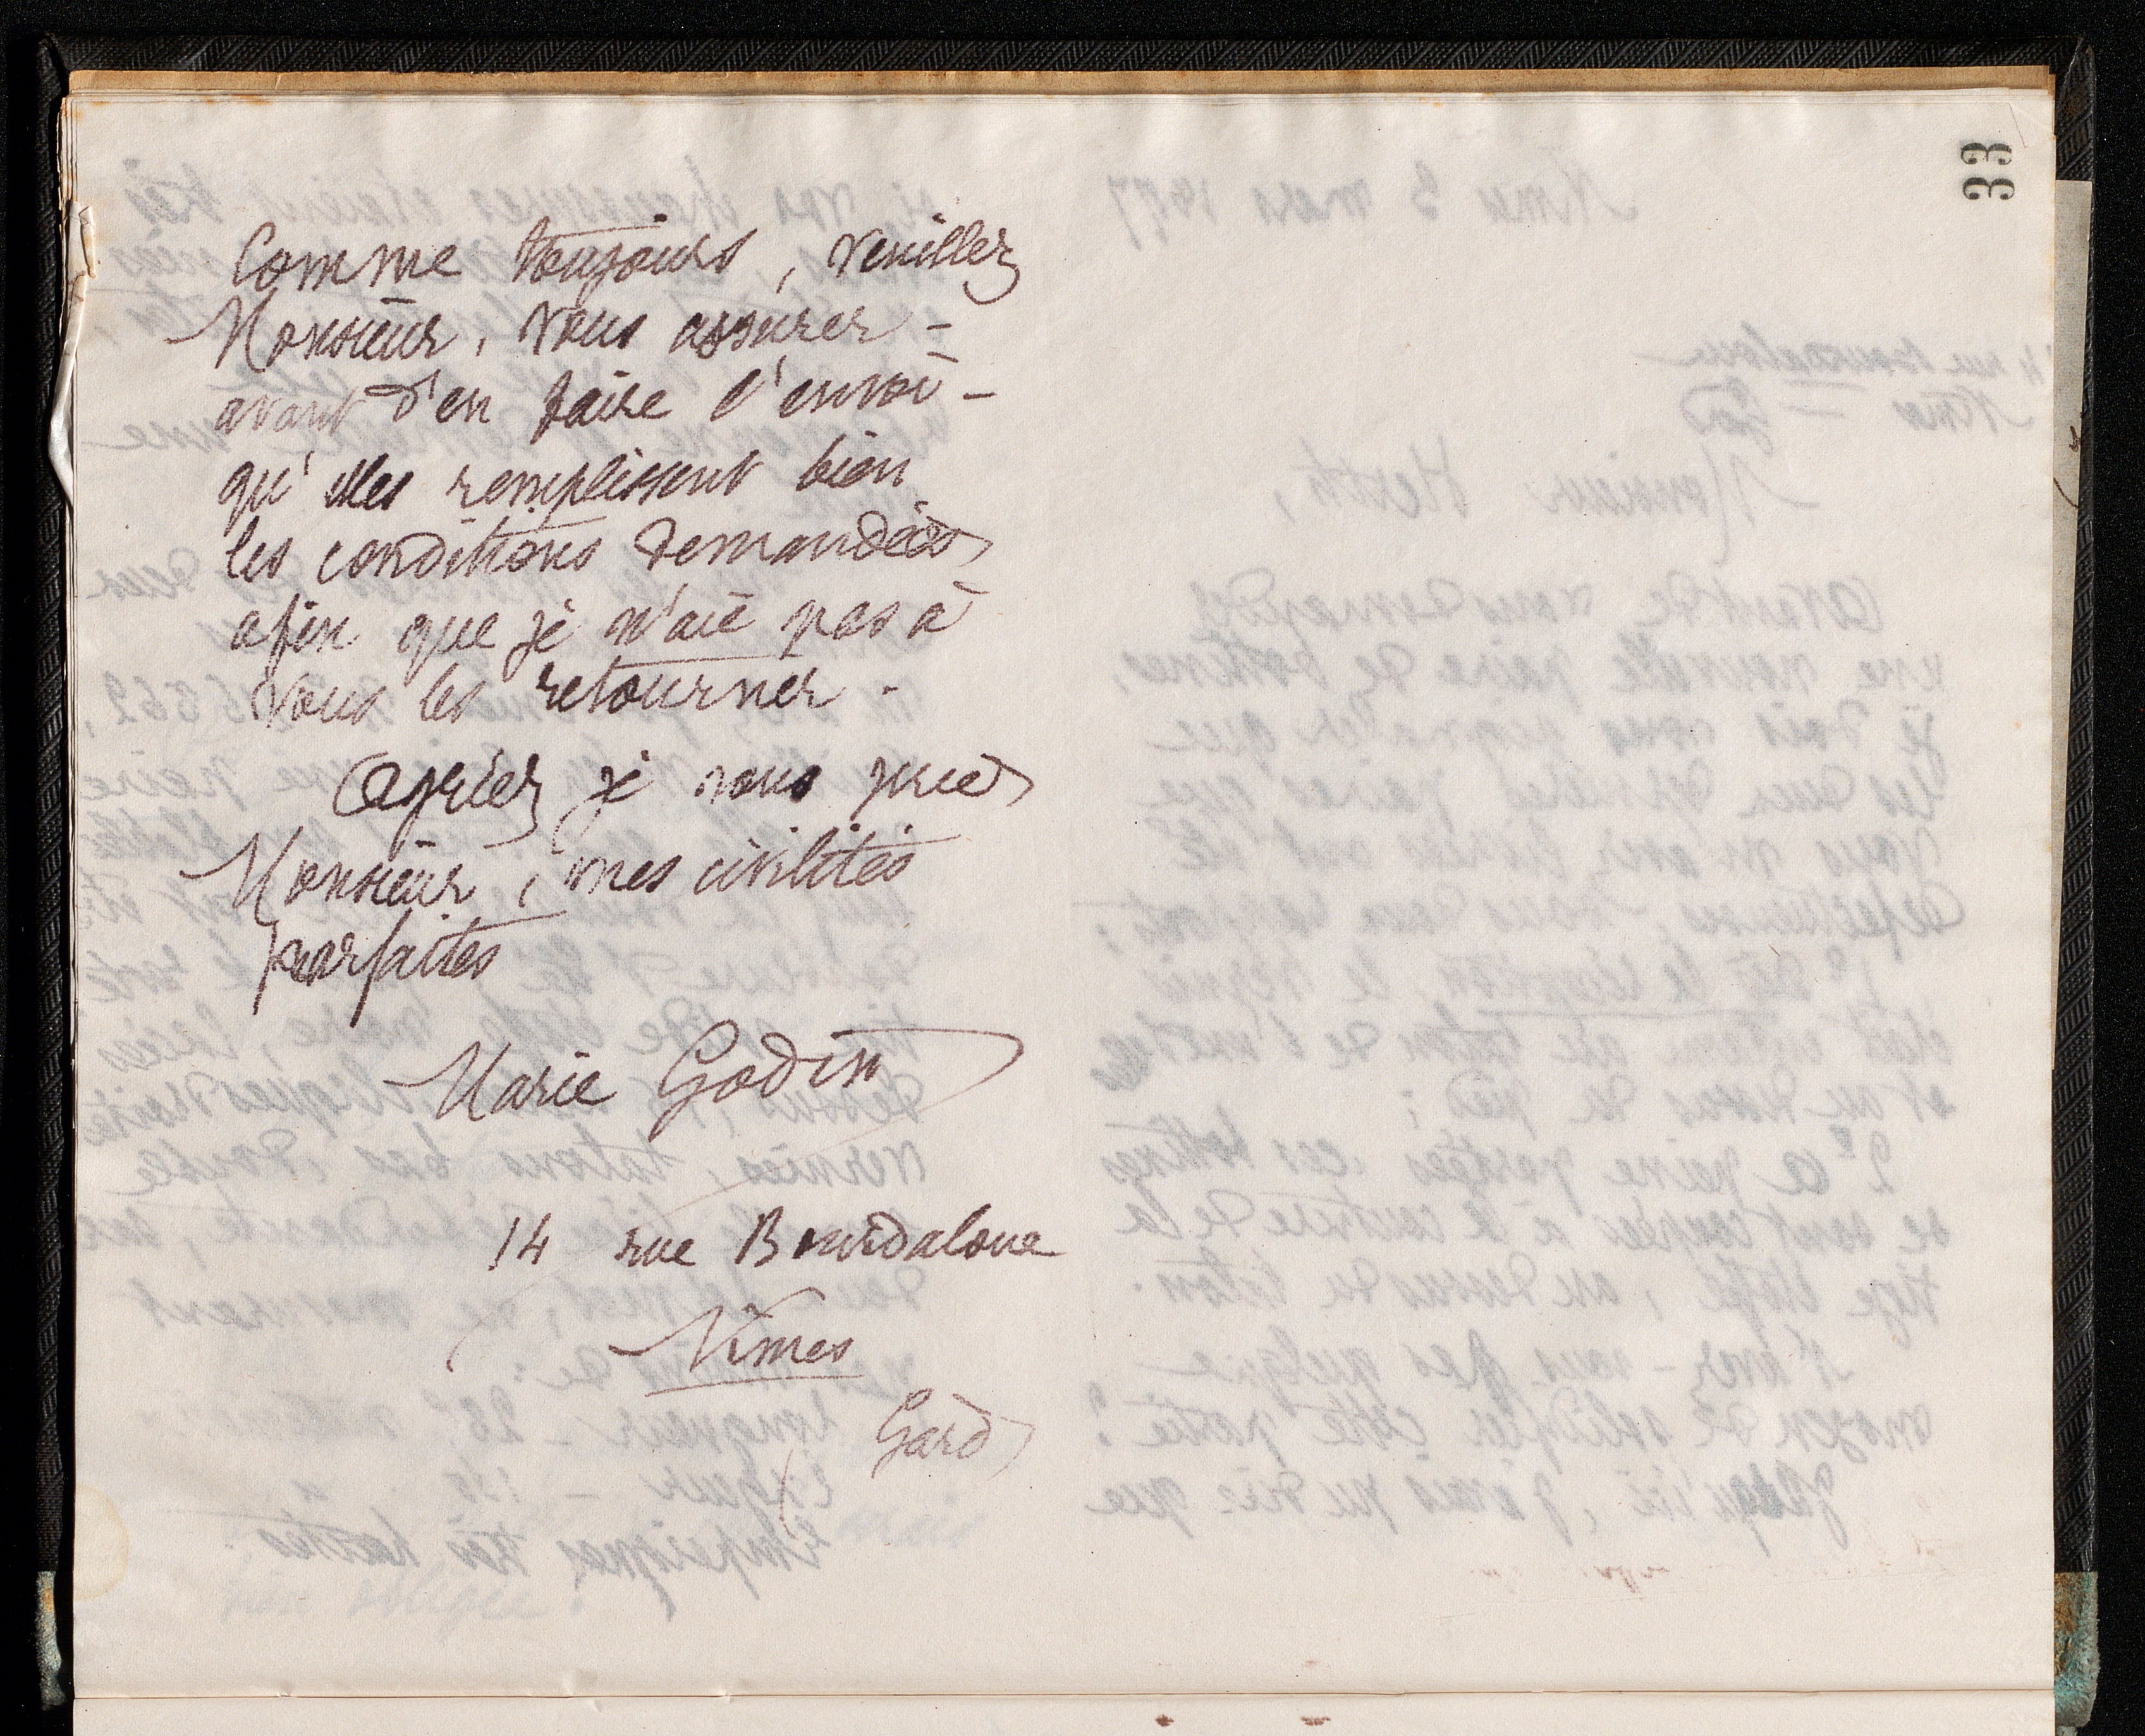 33
Comme toujours, veuillez
Monsieur, vous assurer -
avant d'en faire l'envoi -
qu'elles remplissent bien
les conditions demandées
afin que je n'aie pas à
vous les retourner.
Agréez je vous prie
Monsieur, mes civilités
parfaites
Marie Godin
14 rue Bourdaloue
Nîmes
Gard